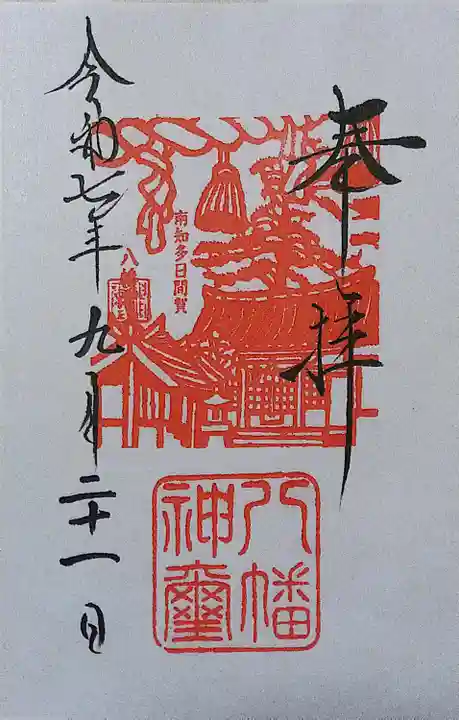 奉拝
八幡
神璽
南知多日間賀
八幡
令和七年九月二十一日